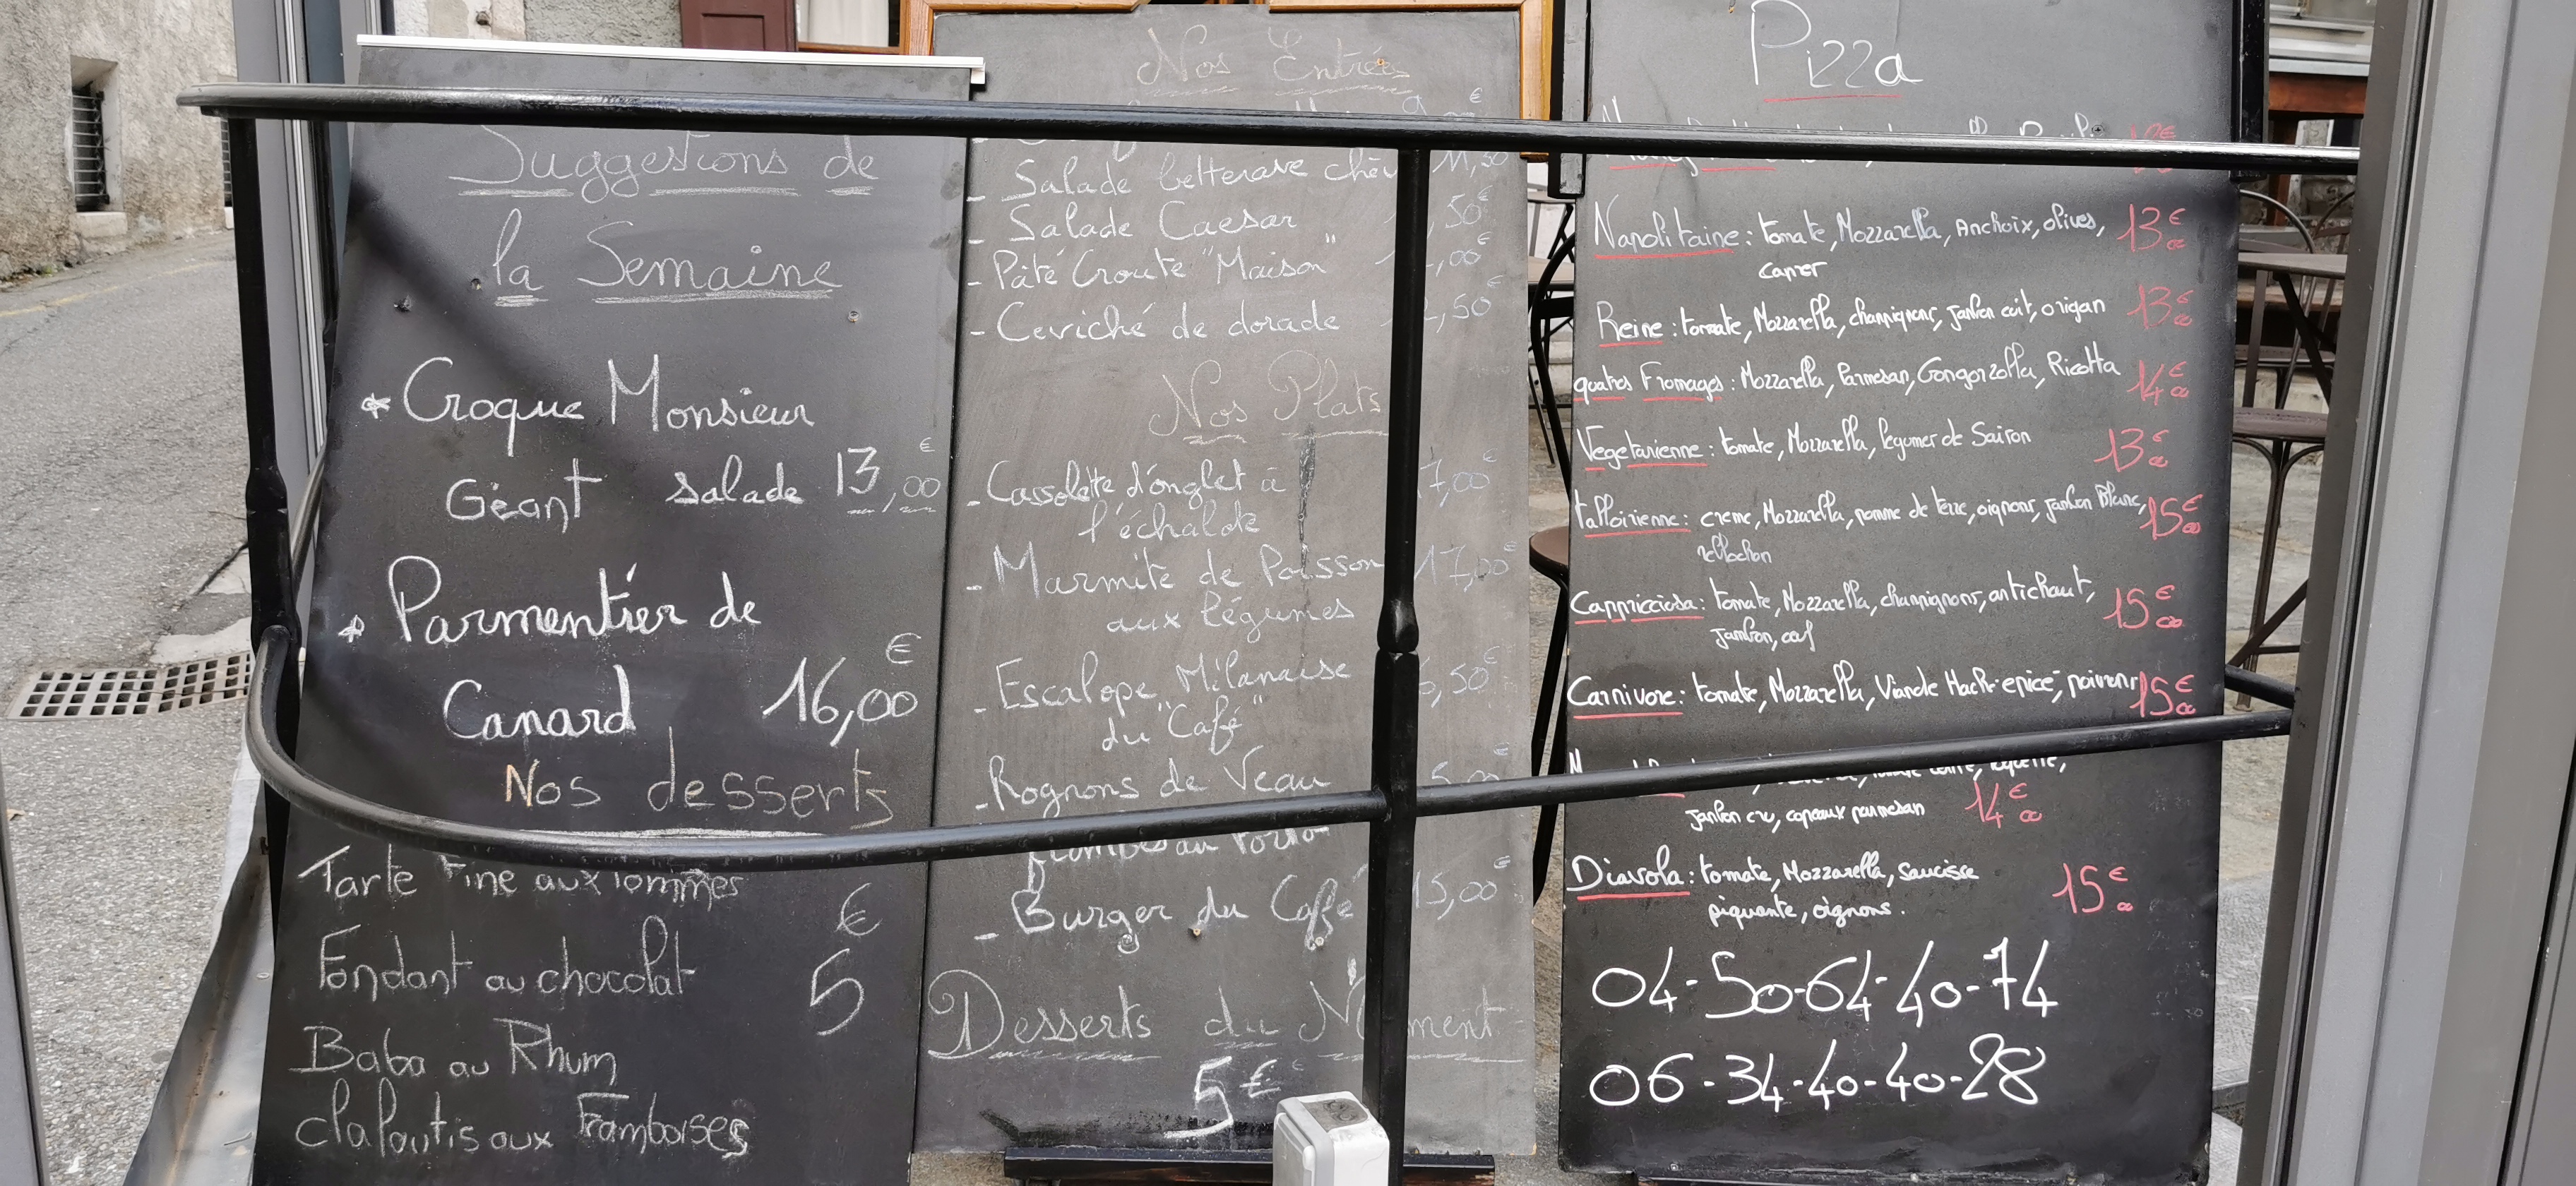 Suggestions de
la Semaine
* Croque Monsieur
Géant salade 13,00 €
* Parmentier de
Canard 16,00 €
Nos desserts
Tarte Fine aux Pommes
Fondant au chocolat
€
5
Baba au Rhum
clafoutis aux Framboises
Nos Entrées
- Salade betterave chèv 11,50
- Salade Caesar ,50 €
- Pâté Croute "Maison" ,00 €
- Ceviché de dorade ,50 €
Nos Plats
- Cassolette d'onglet à 7,00 €
l'échalote
- Marmite de Poisson 17,00 €
aux légumes
- Escalope Milanaise 6,50 €
du "Café"
- Rognons de Veau 5,00 €
flambés au Porto
- Burger du Café 15,00 €
Desserts du Moment
5 €
Pizza
Napolitaine : tomate, Mozzarella, Anchoix, olives, 13 € 00
caper
Reine : tomate, Mozzarella, champignons, jambon cuit, origan 13 € 00
quatres Fromages : Mozzarella, Parmesan, Gongorzolla, Ricotta 14 € 00
Vegetarienne : tomate, Mozzarella, legumes de Saison 13 € 00
talloirienne : creme, Mozzarella, pomme de terre, oignons, jambon Blanc, 15 € 00
reblochon
Cappricciosa : tomate, Mozzarella, champignons, antichaut, 15 € 00
jambon, oeuf
Carnivore : tomate, Mozzarella, Viande Haché epicé, poivrons 15 € 00
jambon cru, copeaux parmesan 14 € 00
Diavola : tomate, Mozzarella, saucisse 15 € 00
piquante, oignons.
04-50-64-40-74
06-34-40-40-28